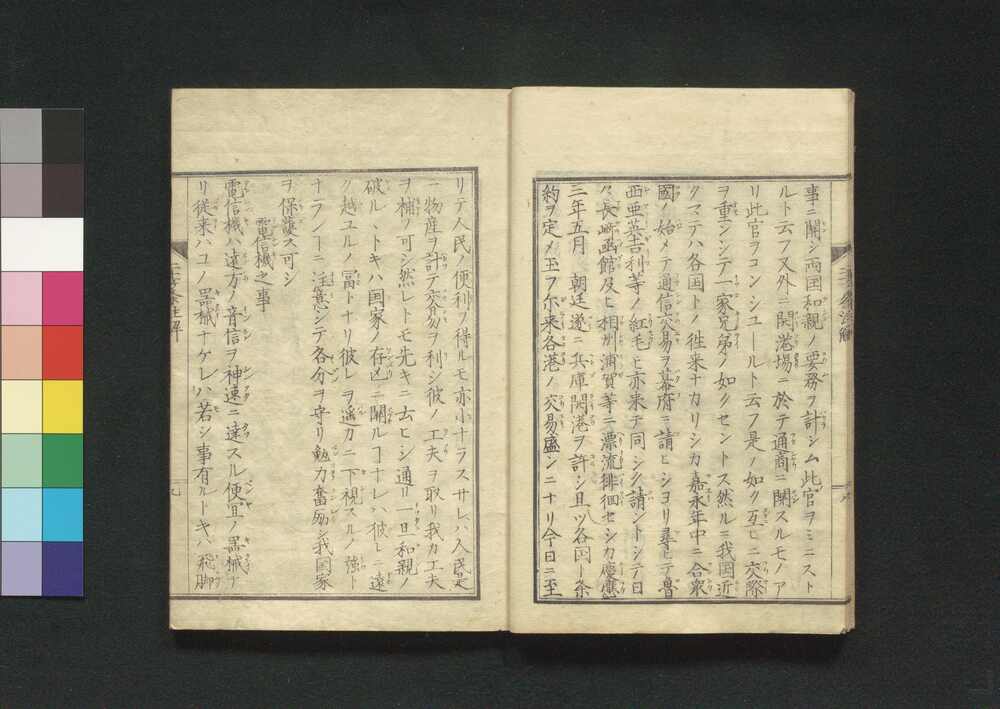 事ニ関シ両国和親ノ要務ヲ計シム此官ヲミニスト
ルト云フ又外ニ開港場ニ於テ通商ニ関スルモノア
リ此官ヲコンシユールト云フ是ノ如ク互ヒニ交際
ヲ重ンシテ一家兄弟ノ如クセントス然ルニ我国近
クマテハ各国トノ往来ナカリシカ嘉永年中ニ合衆
國ノ始メテ通信交易ヲ幕府ニ請ヒシヨリ尋ヒテ魯
西亜英吉利等ノ紅毛ヒ亦来テ同シク請ントシテ日
々長崎函館及ヒ相州浦賀等ニ漂流徘徊セシカ慶應
三年五月 朝廷遂ニ兵庫開港ヲ許シ且ツ各同一条
約ヲ定メ玉フ尓来各港ノ交易盛ンニナリ今日ニ至
リテ人民ノ便利ヲ得ルモ亦小ナラスサレハ人民是
一物産ヲ計テ交易ヲ利シ彼ノ工夫ヲ取リ我カ工夫
ヲ補フ可シ然レトモ先キニ云ヒシ通リ一旦和親ノ
破ルヽトキハ国家ノ存亡ニ関ルコナレハ彼レニ遠
ク越ユルノ冨トナリ彼レヲ遙カニ下視スルノ強ト
ナランコニ注意シテ各分ヲ守リ勉力奮励シ我国家
ヲ保護ス可シ
電信機之事
電信機ハ遠方ノ音信ヲ神速ニ達スル便宜ノ器械ナ
リ従来ハコノ器械ナケレハ若シ事有ルトキハ飛脚